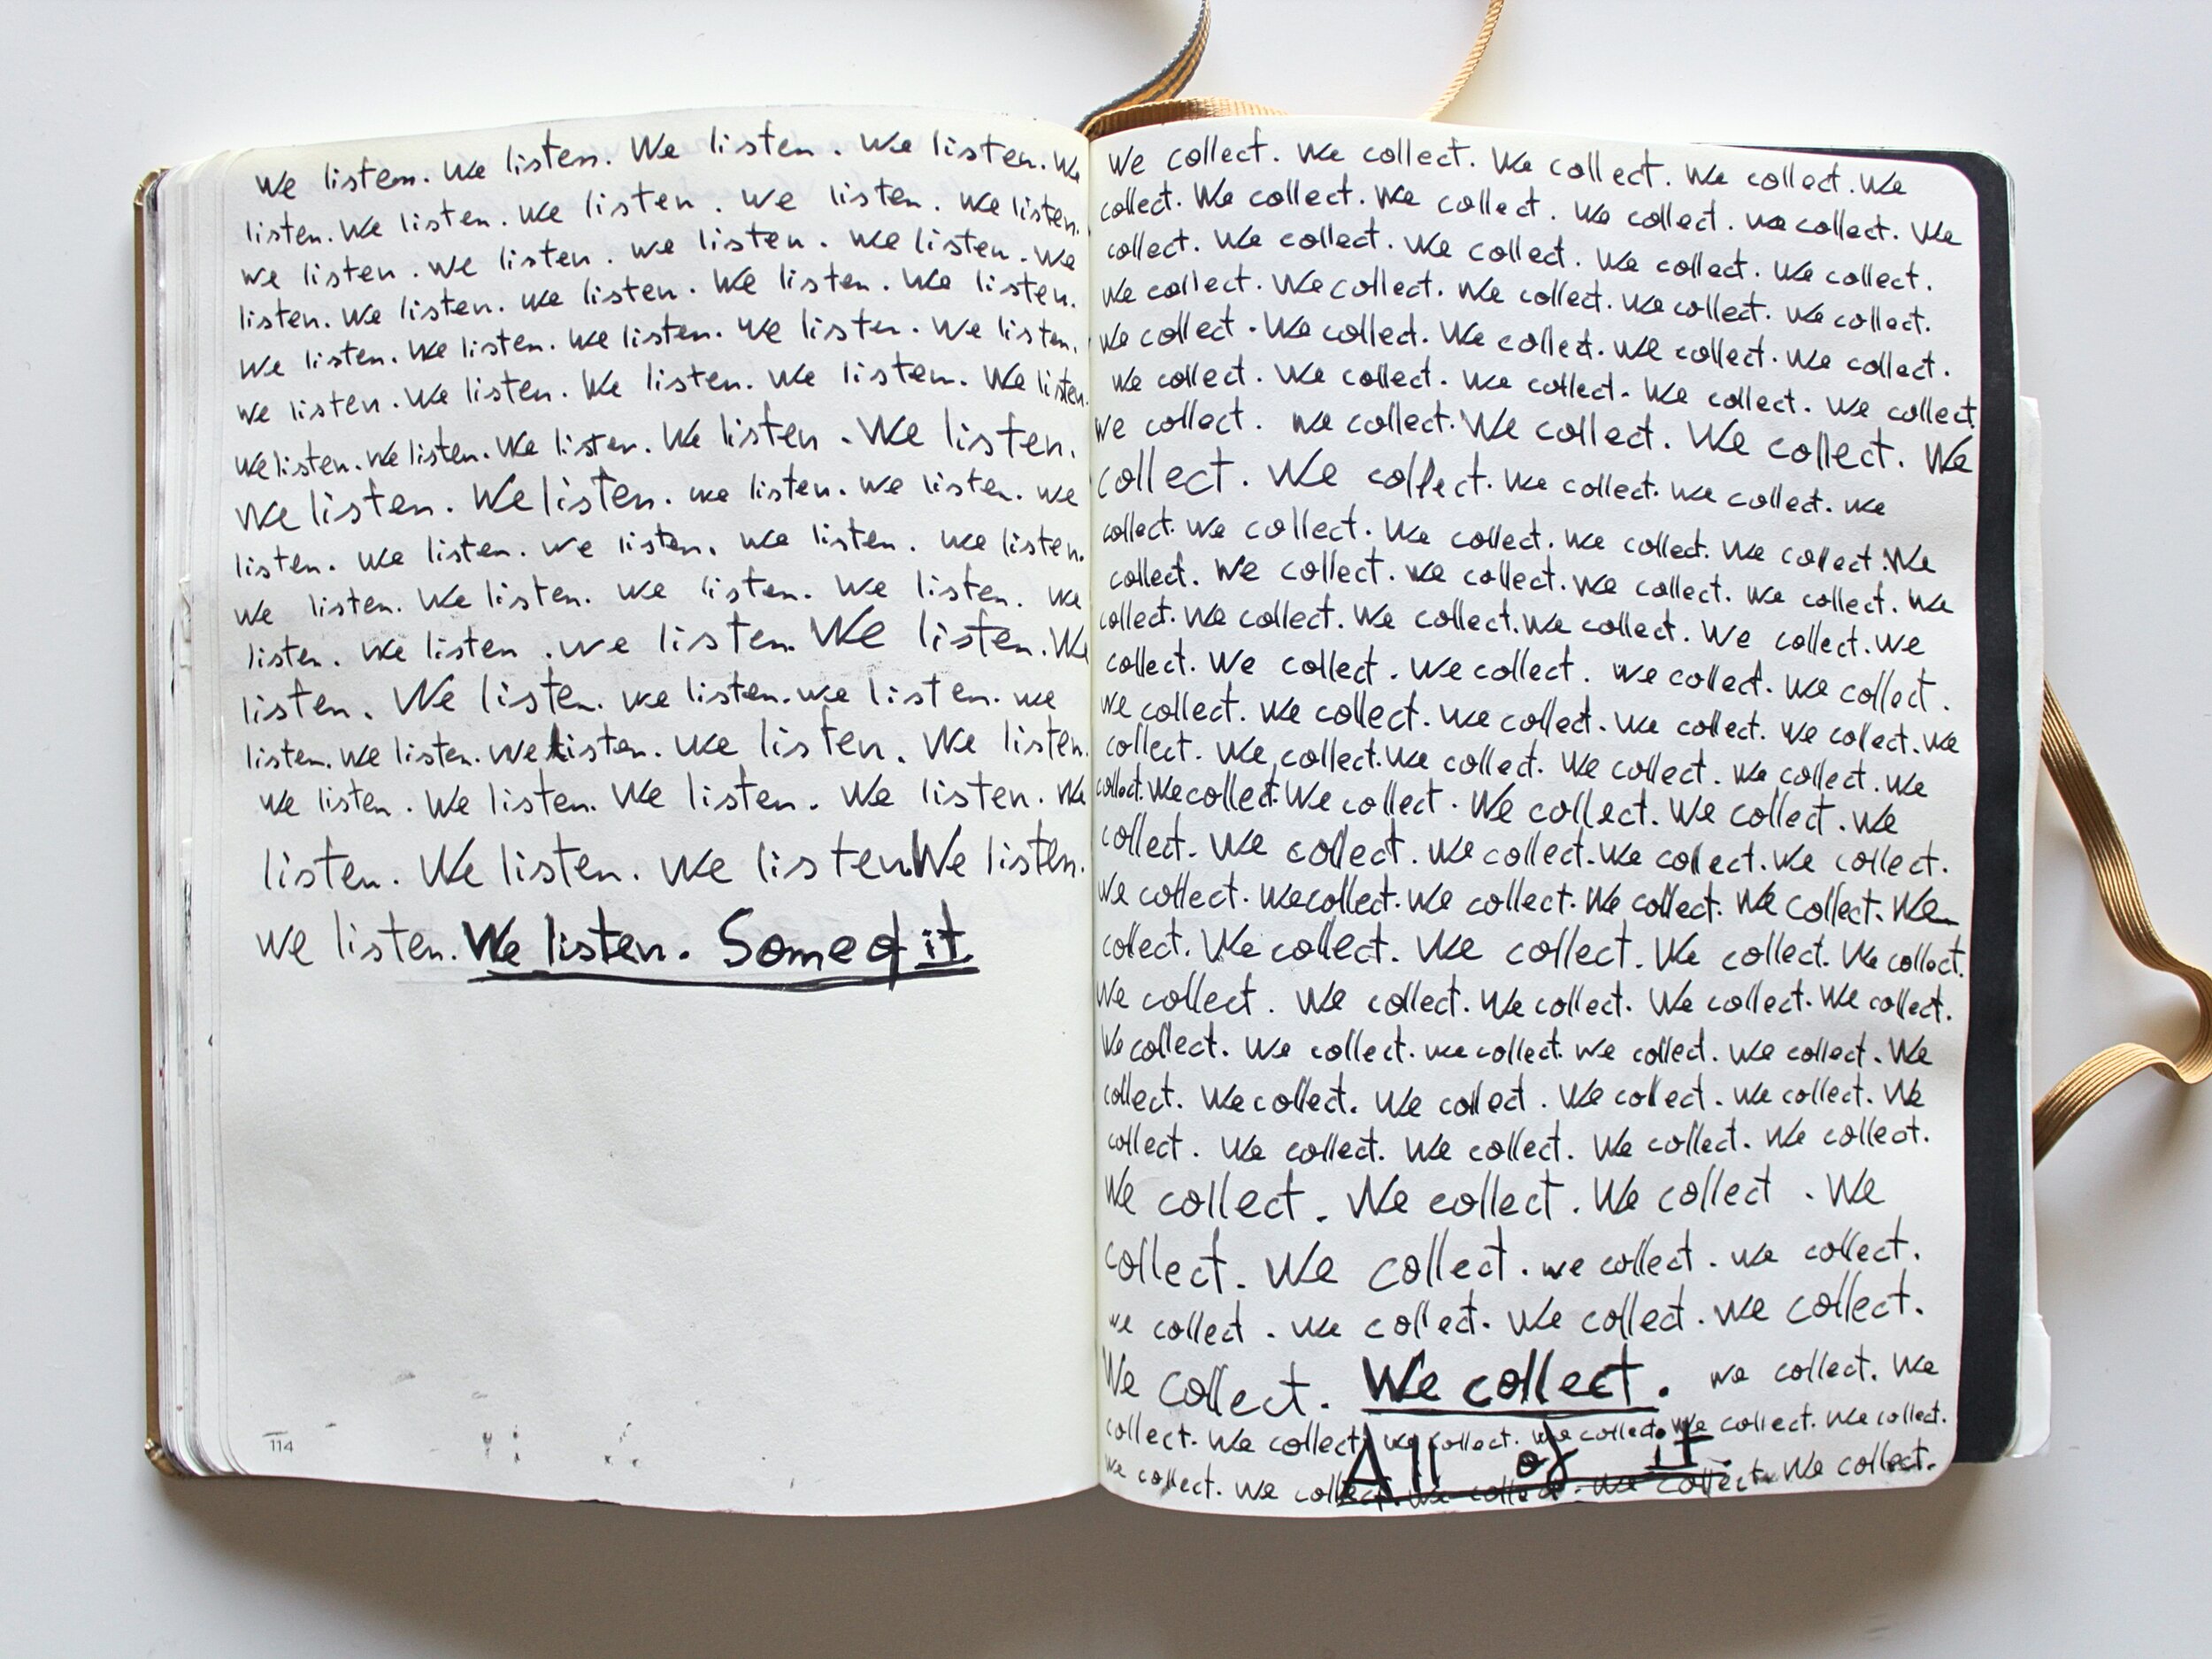 We listen. We listen. We listen. We listen. We
listen. We listen. We listen. We listen. We listen.
We listen. We listen. We listen. We listen. We
listen. We listen. We listen. We listen. We listen.
We listen. We listen. We listen. We listen. We listen.
We listen. We listen. We listen. We listen. We listen.
We listen. We listen. We listen. We listen. We listen.
We listen. We listen. We listen. We listen. We
listen. We listen. We listen. We listen. We listen.
We listen. We listen. We listen. We listen. We
listen. We listen. We listen. We listen. We
listen. We listen. We listen. We listen. We
listen. We listen. We listen. We listen. We listen.
We listen. We listen. We listen. We listen. We
listen. We listen. We listen. We listen.
We listen. We listen. Some of it.
114
We collect. We collect. We collect. We collect. We
collect. We collect. We collect. We collect. We collect. We
collect. We collect. We collect. We collect. We collect.
We collect. We collect. We collect. We collect. We collect.
We collect. We collect. We collect. We collect. We collect.
We collect. We collect. We collect. We collect. We collect.
We collect. We collect. We collect. We collect. We
collect. We collect. We collect. We collect. We
collect. We collect. We collect. We collect. We collect. We
collect. We collect. We collect. We collect. We collect. We
collect. We collect. We collect. We collect. We collect. We
collect. We collect. We collect. We collect. We collect.
We collect. We collect. We collect. We collect. We collect. We
collect. We collect. We collect. We collect. We collect. We
collect. We collect. We collect. We collect. We collect. We
collect. We collect. We collect. We collect. We collect.
We collect. We collect. We collect. We collect. We collect. We
collect. We collect. We collect. We collect. We collect.
We collect. We collect. We collect. We collect. We collect.
We collect. We collect. We collect. We collect. We collect. We
collect. We collect. We collect. We collect. We collect. We
collect. We collect. We collect. We collect. We collect.
We collect. We collect. We collect. We
collect. We collect. We collect. We collect.
We collect. We collect. We collect. We collect.
We collect. We collect. We collect. We
collect. We collect. We collect. We collect. We collect. We collect.
All of it.
We collect. We collect. We collect. We collect. We collect.